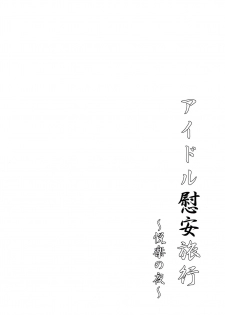 アイドル慰安旅行
～悦楽の夜～